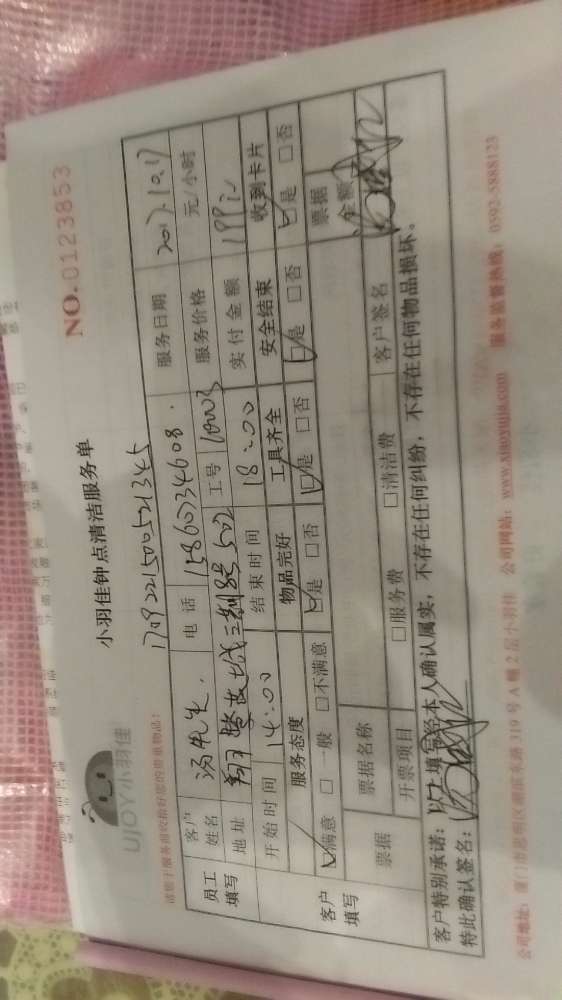 UJOY小羽佳
小羽佳钟点清洁服务单
NO.0123853
请您于服务前收检好您的贵重物品!
1709221500521345
员工填写
客户姓名 汤先生 电话 15860734608 服务日期 2017.10.17
地址 工号 10003 服务价格 元/小时
开始时间 14:00 结束时间 18:00 实付金额 199元
客户填写
服务态度 物品完好 工具齐全 安全结束 收到卡片
☑满意 □一般 □不满意 ☑是 □否 ☑是 □否 ☑是 □否 ☑是 □否
票据 票据名称 票据金额
开票项目 □服务费 □清洁费 客户签名
客户特别承诺:以上填写经本人确认属实,不存在任何纠纷,不存在任何物品损坏。
特此确认签名:
公司地址:厦门市思明区湖滨东路319号A幢2层小羽佳 公司网站:www.xiaoyujia.com 服务监督热线:0592-5888123